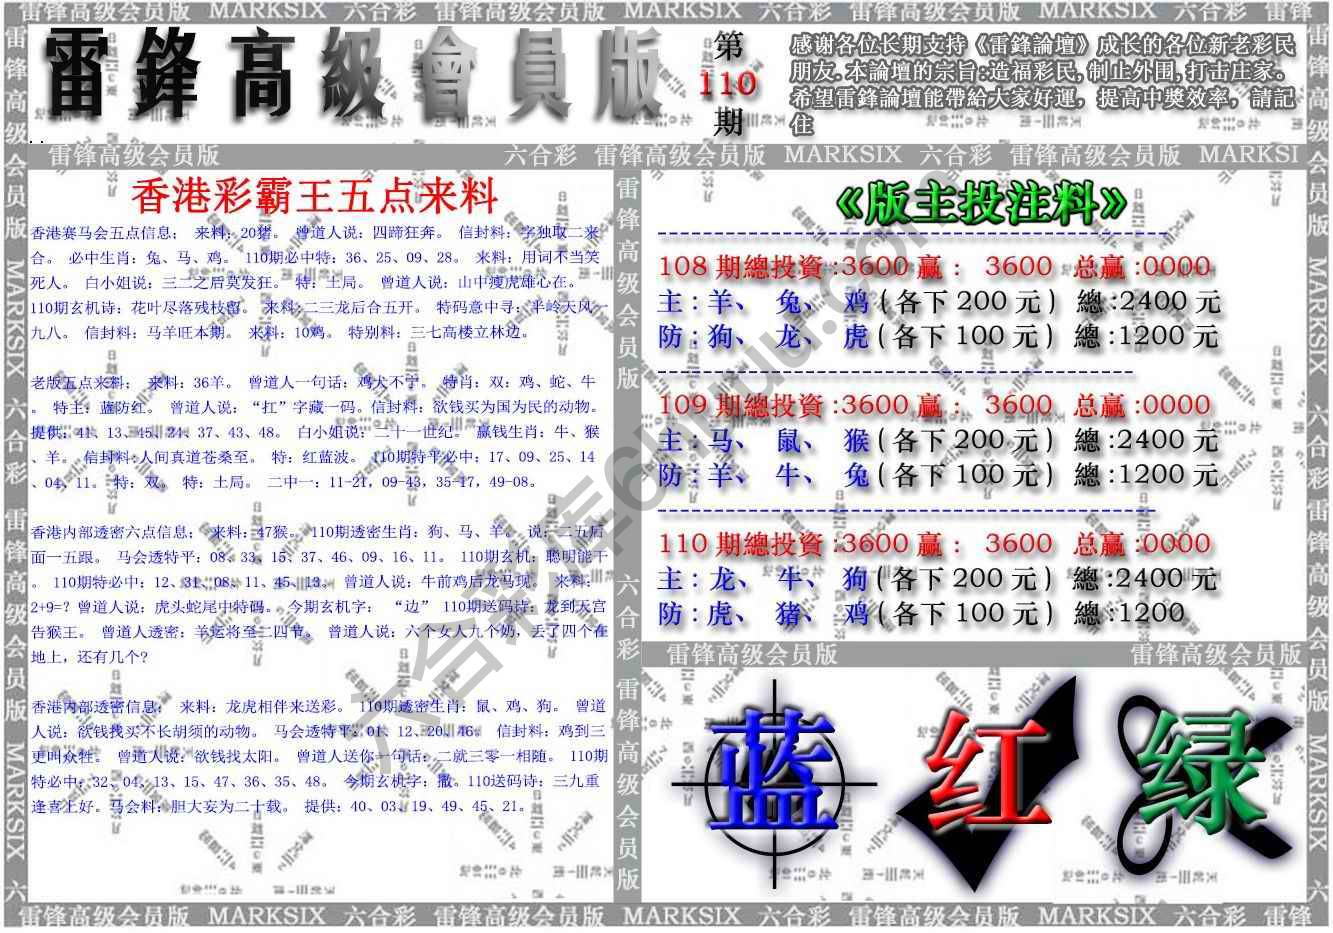 雷锋高级会员版 MARKSIX 六合彩 雷锋高级会员版 MARKSIX 六合彩 雷锋高级会员版 MARKSIX 六合彩 雷锋
雷鋒高級會員版
第
110
期
感谢各位长期支持《雷鋒論壇》成长的各位新老彩民
朋友.本論壇的宗旨:造福彩民,制止外围,打击庄家。
希望雷鋒論壇能帶給大家好運，提高中獎效率，請記
住
雷锋高级会员版 六合彩 雷锋高级会员版 MARKSIX 六合彩 雷锋高级会员版 MARKSI
香港彩霸王五点来料
香港赛马会五点信息； 来料：20猪。 曾道人说：四蹄狂奔。 信封料：字独取二来
合。 必中生肖：兔、马、鸡。 110期必中特：36、25、09、28。 来料：用词不当笑
死人。 白小姐说：三二之后莫发狂。 特：土局。 曾道人说：山中瘦虎雄心在。
110期玄机诗：花叶尽落残枝留。 来料:二三龙后合五开。 特码意中寻：半岭天风一
九八。 信封料：马羊旺本期。 来料：10鸡。 特别料：三七高楼立林边。
老版五点来料； 来料：36羊。 曾道人一句话：鸡犬不宁。 特肖：双：鸡、蛇、牛
。 特主：蓝防红。 曾道人说：“扛”字藏一码。信封料：欲钱买为国为民的动物。
提供：41、13、45、24、37、43、48。 白小姐说：二十一世纪。 赢钱生肖：牛、猴
、羊。 信封料:人间真道苍桑至。 特：红蓝波。 110期特平必中；17、09、25、14
、04、11。 特：双。 特：土局。 二中一；11-21，09-43，35-17，49-08。
香港内部透密六点信息； 来料：47猴。 110期透密生肖：狗、马、羊。 说：二五后
面一五跟。 马会透特平：08、33、15、37、46、09、16、11。 110期玄机：聪明能干
。 110期特必中；12、31、08、11、45、13。 曾道人说：牛前鸡后龙马现。 来料：
2+9=？曾道人说：虎头蛇尾中特码。 今期玄机字； “边” 110期送码诗：龙到天宫
告猴王。 曾道人透密：羊运将至二四节。 曾道人说：六个女人九个奶，丢了四个在
地上，还有几个?
香港内部透密信息； 来料：龙虎相伴来送彩。 110期透密生肖：鼠、鸡、狗。 曾道
人说：欲钱找买不长胡须的动物。 马会透特平：01、12、20、46。 信封料：鸡到三
更叫众牲。 曾道人说：欲钱找太阳。 曾道人送你一句话：二就三零一相随。 110期
特必中：32、04、13、15、47、36、35、48。 今期玄机字；撒。110送码诗：三九重
逢喜上好。马会料：胆大妄为二十载。 提供：40、03、19、49、45、21。
《版主投注料》
108 期總投資:3600 赢： 3600 总赢:0000
主：羊、 兔、 鸡(各下 200 元) 總:2400 元
防：狗、 龙、 虎(各下 100 元) 總:1200 元
109 期總投資:3600 赢： 3600 总赢:0000
主：马、 鼠、 猴(各下 200 元) 總:2400 元
防：羊、 牛、 兔(各下 100 元) 總:1200 元
110 期總投資:3600 赢： 3600 总赢:0000
主：龙、 牛、 狗(各下 200 元) 總:2400 元
防：虎、 猪、 鸡(各下 100 元) 總:1200
雷锋高级会员版 雷锋高级会员版
蓝 红 绿
雷锋高级会员版 MARKSIX 六合彩 雷锋高级会员版 MARKSIX 六合彩 雷锋高级会员版 MARKSIX 六合彩 雷锋